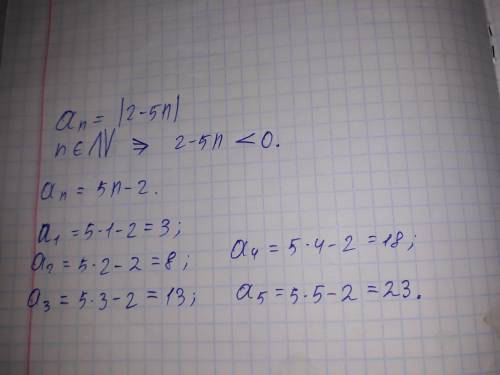 aₙ = |2-5n|
n ∈ N ⇒ 2-5n < 0.
aₙ = 5n-2.
a₁ = 5·1-2 = 3;
a₂ = 5·2-2 = 8;
a₃ = 5·3-2 = 13;
a₄ = 5·4-2 = 18;
a₅ = 5·5-2 = 23.